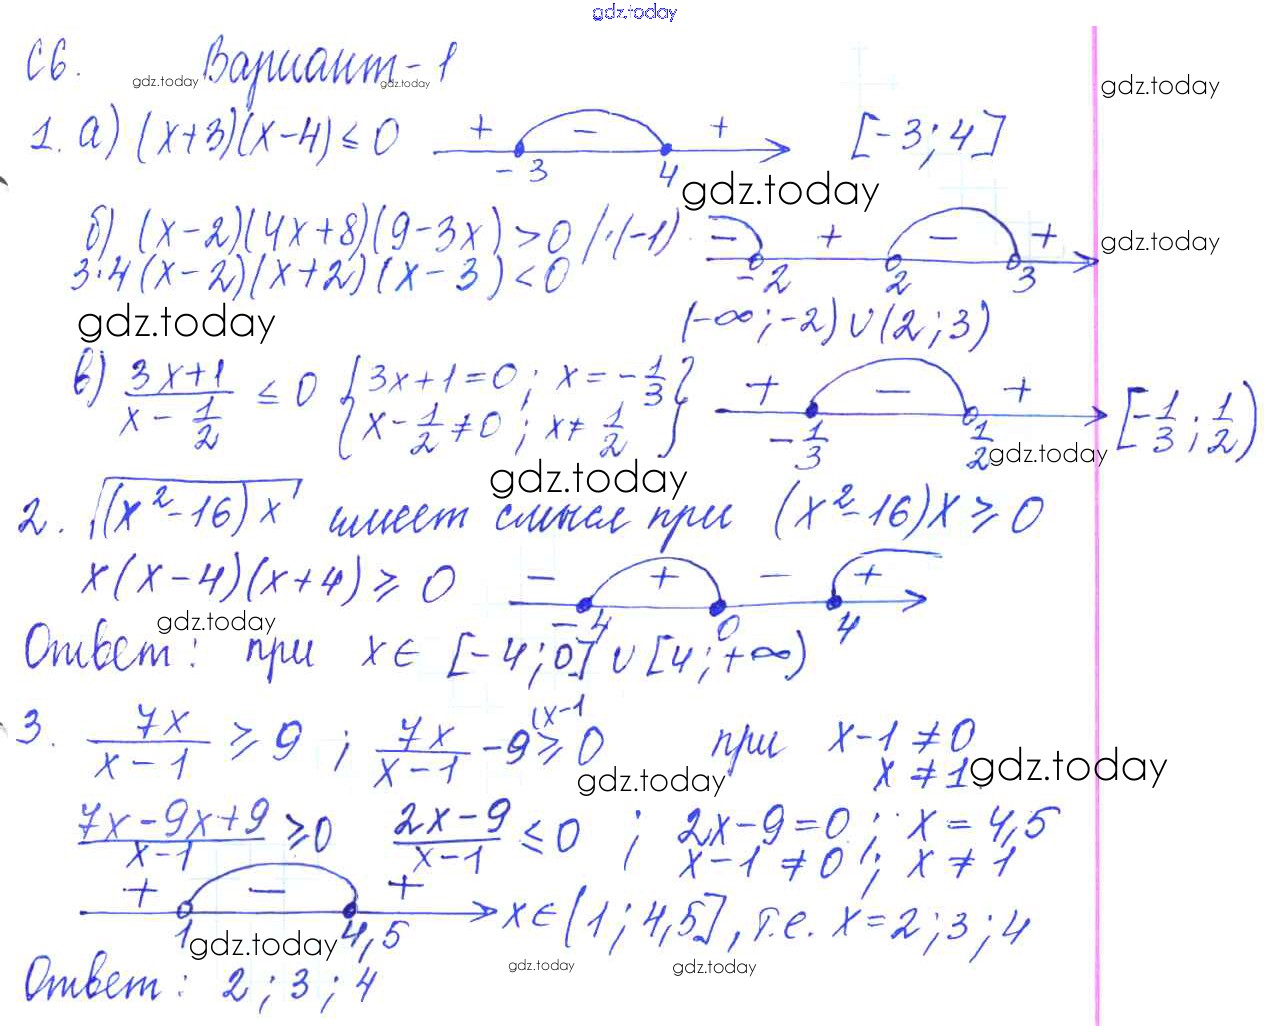 gdz.today
С6. gdz.today Вариант-1 gdz.today
gdz.today
1. а) (x+3)(x-4) ≤ 0 + - + -3 4 [-3; 4]
gdz.today
б) (x-2)(4x+8)(9-3x) > 0 /·(-1) - + - + -2 2 3 gdz.today
3·4(x-2)(x+2)(x-3) < 0
gdz.today (-∞; -2) ∪ (2; 3)
в) (3x+1)/(x - 1/2) ≤ 0 { 3x+1=0; x = -1/3 + - + -1/3 1/2 [-1/3; 1/2)
x - 1/2 ≠ 0; x ≠ 1/2 }
gdz.today
gdz.today
2. √((x²-16)x) имеет смысл при (x²-16)x ≥ 0
x(x-4)(x+4) ≥ 0 - + - + -4 0 4
gdz.today
Ответ: при x ∈ [-4; 0] ∪ [4; +∞)
3. 7x/(x-1) ≥ 9; 7x/(x-1) - 9 (x-1 ≥ 0 при x-1 ≠ 0
x ≠ 1 gdz.today
gdz.today
(7x-9x+9)/(x-1) ≥ 0 (2x-9)/(x-1) ≤ 0; 2x-9=0; x = 4,5
x-1 ≠ 0; x ≠ 1
+ - + 1 4,5 x ∈ (1; 4,5], т.е. x = 2; 3; 4
gdz.today
gdz.today gdz.today
Ответ: 2; 3; 4